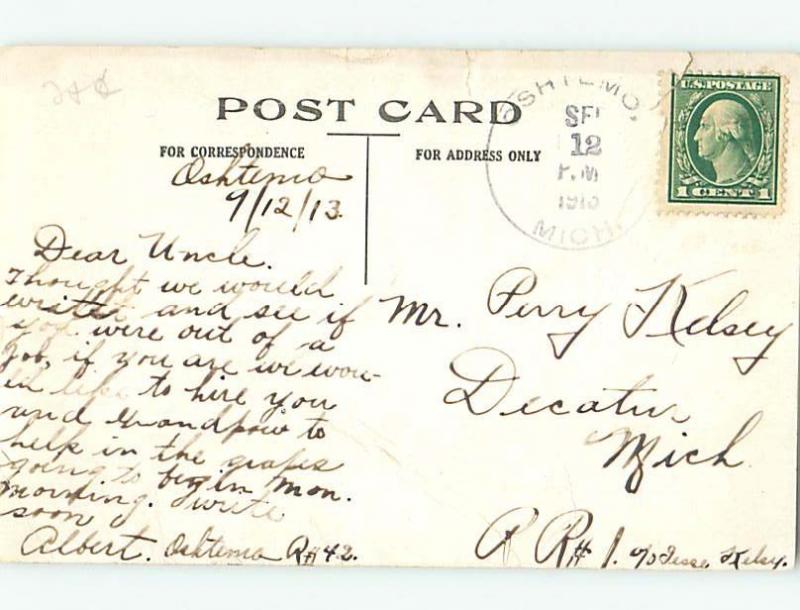 POST CARD
FOR CORRESPONDENCE
FOR ADDRESS ONLY
OSHTEMO,
SEP
12
P.M
1913
MICH.
U.S. POSTAGE
1 CENT 1
Oshtemo
9/12/13.
Dear Uncle.
Thought we would
write and see if
you were out of a
job, if you are we wou-
ld like to hire you
and Grandpaw to
help in the grapes
going to begin Mon.
morning. write
soon
Albert. Oshtemo R#42.
Mr. Perry Kelsey
Decatur
Mich
R R# 1. c/o Jesse Kelsey.